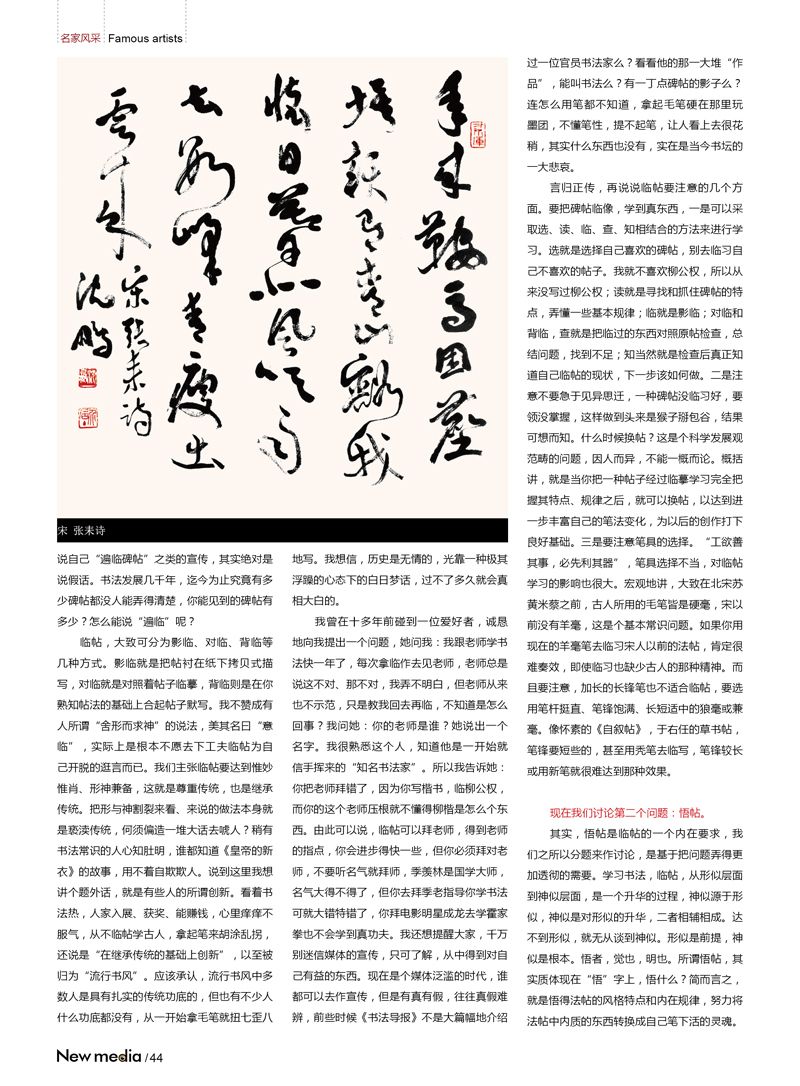 名家风采 Famous artists
年来鞍馬困塵
埃赖有青山豁我
懷日暮北風吹雨
去數峰清瘦出
雲中来
宋張耒诗
沈鹏
宋 张耒诗
说自己“遍临碑帖”之类的宣传，其实绝对是
说假话。书法发展几千年，迄今为止究竟有多
少碑帖都没人能弄得清楚，你能见到的碑帖有
多少？怎么能说“遍临”呢？
临帖，大致可分为影临、对临、背临等
几种方式。影临就是把帖衬在纸下拷贝式描
写，对临就是对照着帖子临摹，背临则是在你
熟知帖法的基础上合起帖子默写。我不赞成有
人所谓“舍形而求神”的说法，美其名曰“意
临”，实际上是根本不愿去下工夫临帖为自
己开脱的诳言而已。我们主张临帖要达到惟妙
惟肖、形神兼备，这就是尊重传统，也是继承
传统。把形与神割裂来看、来说的做法本身就
是亵渎传统，何须偏造一堆大话去唬人？稍有
书法常识的人心知肚明，谁都知道《皇帝的新
衣》的故事，用不着自欺欺人。说到这里我想
讲个题外话，就是有些人的所谓创新。看着书
法热，人家入展、获奖、能赚钱，心里痒痒不
服气，从不临帖学古人，拿起笔来胡涂乱拐，
还说是“在继承传统的基础上创新”，以至被
归为“流行书风”。应该承认，流行书风中多
数人是具有扎实的传统功底的，但也有不少人
什么功底都没有，从一开始拿毛笔就扭七歪八
地写。我想信，历史是无情的，光靠一种极其
浮躁的心态下的白日梦话，过不了多久就会真
相大白的。
我曾在十多年前碰到一位爱好者，诚恳
地向我提出一个问题，她问我：我跟老师学书
法快一年了，每次拿临作去见老师，老师总是
说这不对、那不对，我弄不明白，但老师从来
也不示范，只是教我回去再临，不知道是怎么
回事？我问她：你的老师是谁？她说出一个
名字。我很熟悉这个人，知道他是一开始就
信手挥来的“知名书法家”。所以我告诉她：
你把老师拜错了，因为你写楷书，临柳公权，
而你的这个老师压根就不懂得柳楷是怎么个东
西。由此可以说，临帖可以拜老师，得到老师
的指点，你会进步得快一些，但你必须拜对老
师，不要听名气就拜师，季羡林是国学大师，
名气大得不得了，但你去拜季老指导你学书法
可就大错特错了，你拜电影明星成龙去学霍家
拳也不会学到真功夫。我还想提醒大家，千万
别迷信媒体的宣传，只可了解，从中得到对自
己有益的东西。现在是个媒体泛滥的时代，谁
都可以去作宣传，但是有真有假，往往真假难
辨，前些时候《书法导报》不是大篇幅地介绍
过一位官员书法家么？看看他的那一大堆“作
品”，能叫书法么？有一丁点碑帖的影子么？
连怎么用笔都不知道，拿起毛笔硬在那里玩
墨团，不懂笔性，提不起笔，让人看上去很花
稍，其实什么东西也没有，实在是当今书坛的
一大悲哀。
言归正传，再说说临帖要注意的几个方
面。要把碑帖临像，学到真东西，一是可以采
取选、读、临、查、知相结合的方法来进行学
习。选就是选择自己喜欢的碑帖，别去临习自
己不喜欢的帖子。我就不喜欢柳公权，所以从
来没写过柳公权；读就是寻找和抓住碑帖的特
点，弄懂一些基本规律；临就是影临；对临和
背临，查就是把临过的东西对照原帖检查，总
结问题，找到不足；知当然就是检查后真正知
道自己临帖的现状，下一步该如何做。二是注
意不要急于见异思迁，一种碑帖没临习好，要
领没掌握，这样做到头来是猴子掰包谷，结果
可想而知。什么时候换帖？这是个科学发展观
范畴的问题，因人而异，不能一慨而论。概括
讲，就是当你把一种帖子经过临摹学习完全把
握其特点、规律之后，就可以换帖，以达到进
一步丰富自己的笔法变化，为以后的创作打下
良好基础。三是要注意笔具的选择。“工欲善
其事，必先利其器”，笔具选择不当，对临帖
学习的影响也很大。宏观地讲，大致在北宋苏
黄米蔡之前，古人所用的毛笔皆是硬毫，宋以
前没有羊毫，这是个基本常识问题。如果你用
现在的羊毫笔去临习宋人以前的法帖，肯定很
难奏效，即使临习也缺少古人的那种精神。而
且要注意，加长的长锋笔也不适合临帖，要选
用笔杆挺直、笔锋饱满、长短适中的狼毫或兼
毫。像怀素的《自叙帖》，于右任的草书帖，
笔锋要短些的，甚至用秃笔去临写，笔锋较长
或用新笔就很难达到那种效果。
现在我们讨论第二个问题：悟帖。
其实，悟帖是临帖的一个内在要求，我
们之所以分题来作讨论，是基于把问题弄得更
加透彻的需要。学习书法，临帖，从形似层面
到神似层面，是一个升华的过程，神似源于形
似，神似是对形似的升华，二者相辅相成。达
不到形似，就无从谈到神似。形似是前提，神
似是根本。悟者，觉也，明也。所谓悟帖，其
实质体现在“悟”字上，悟什么？简而言之，
就是悟得法帖的风格特点和内在规律，努力将
法帖中内质的东西转换成自己笔下活的灵魂。
New media / 44